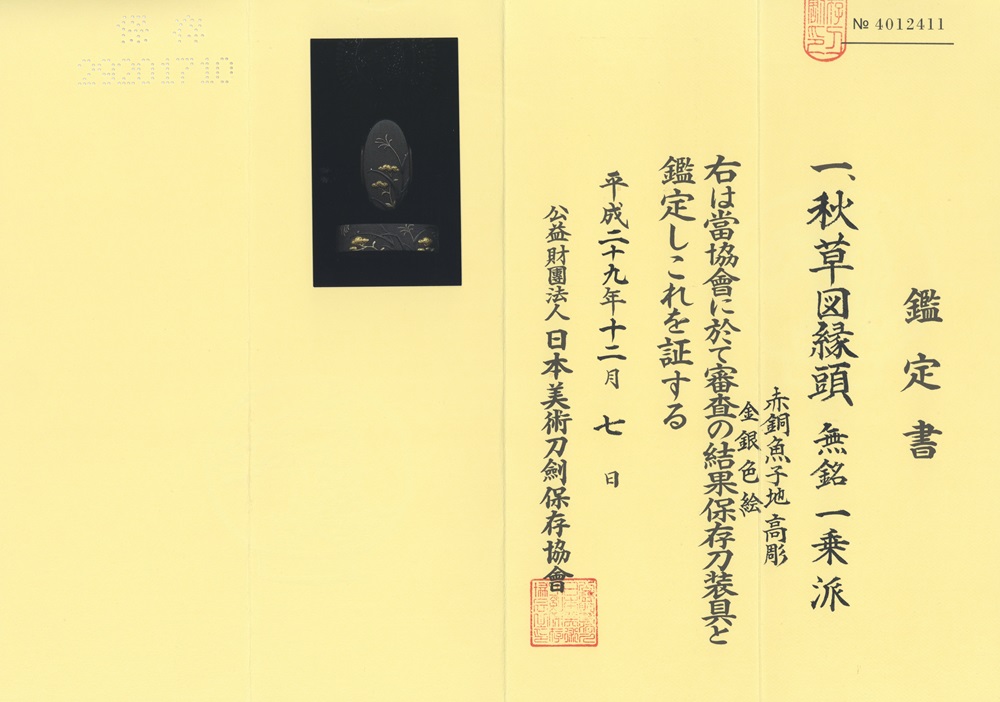 № 4012411
鑑定書
一、秋草図縁頭 無銘 一乗派
赤銅魚子地 高彫
金銀色絵
右は當協會に於て審査の結果保存刀装具と
鑑定しこれを証する
平成二十九年十二月 七 日
公益財團法人 日本美術刀劍保存協會
保存
29201710